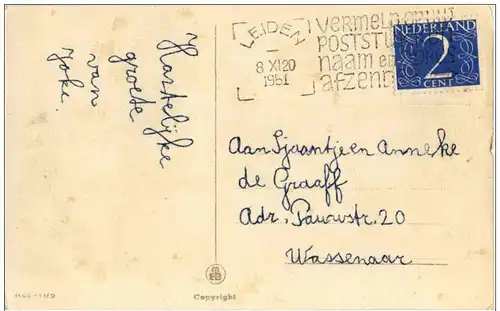 Hartelijke
groete
van
Joke.
LEIDEN
8 XI 20
1951
vermeld op uw
POSTSTU
naam en
afzend
NEDERLAND
2
CENT
Aan Sjaantje en Anneke
de Graaff
Adr. Pauwstr. 20
Wassenaar
Copyright